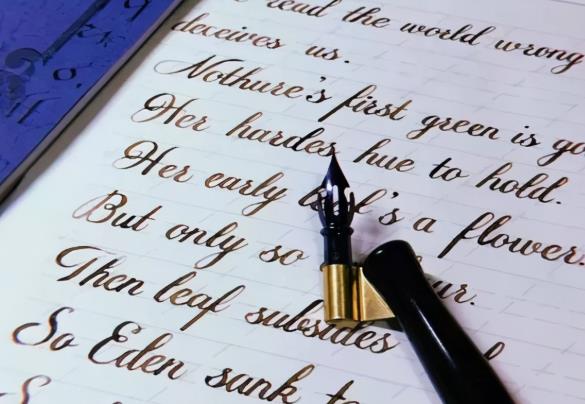 read the world wrong
deceives us.
Nothure's first green is go
Her hardes hue to hold.
Her early l's a flower.
But only so ur.
Then leaf subsides
So Eden sank to
S